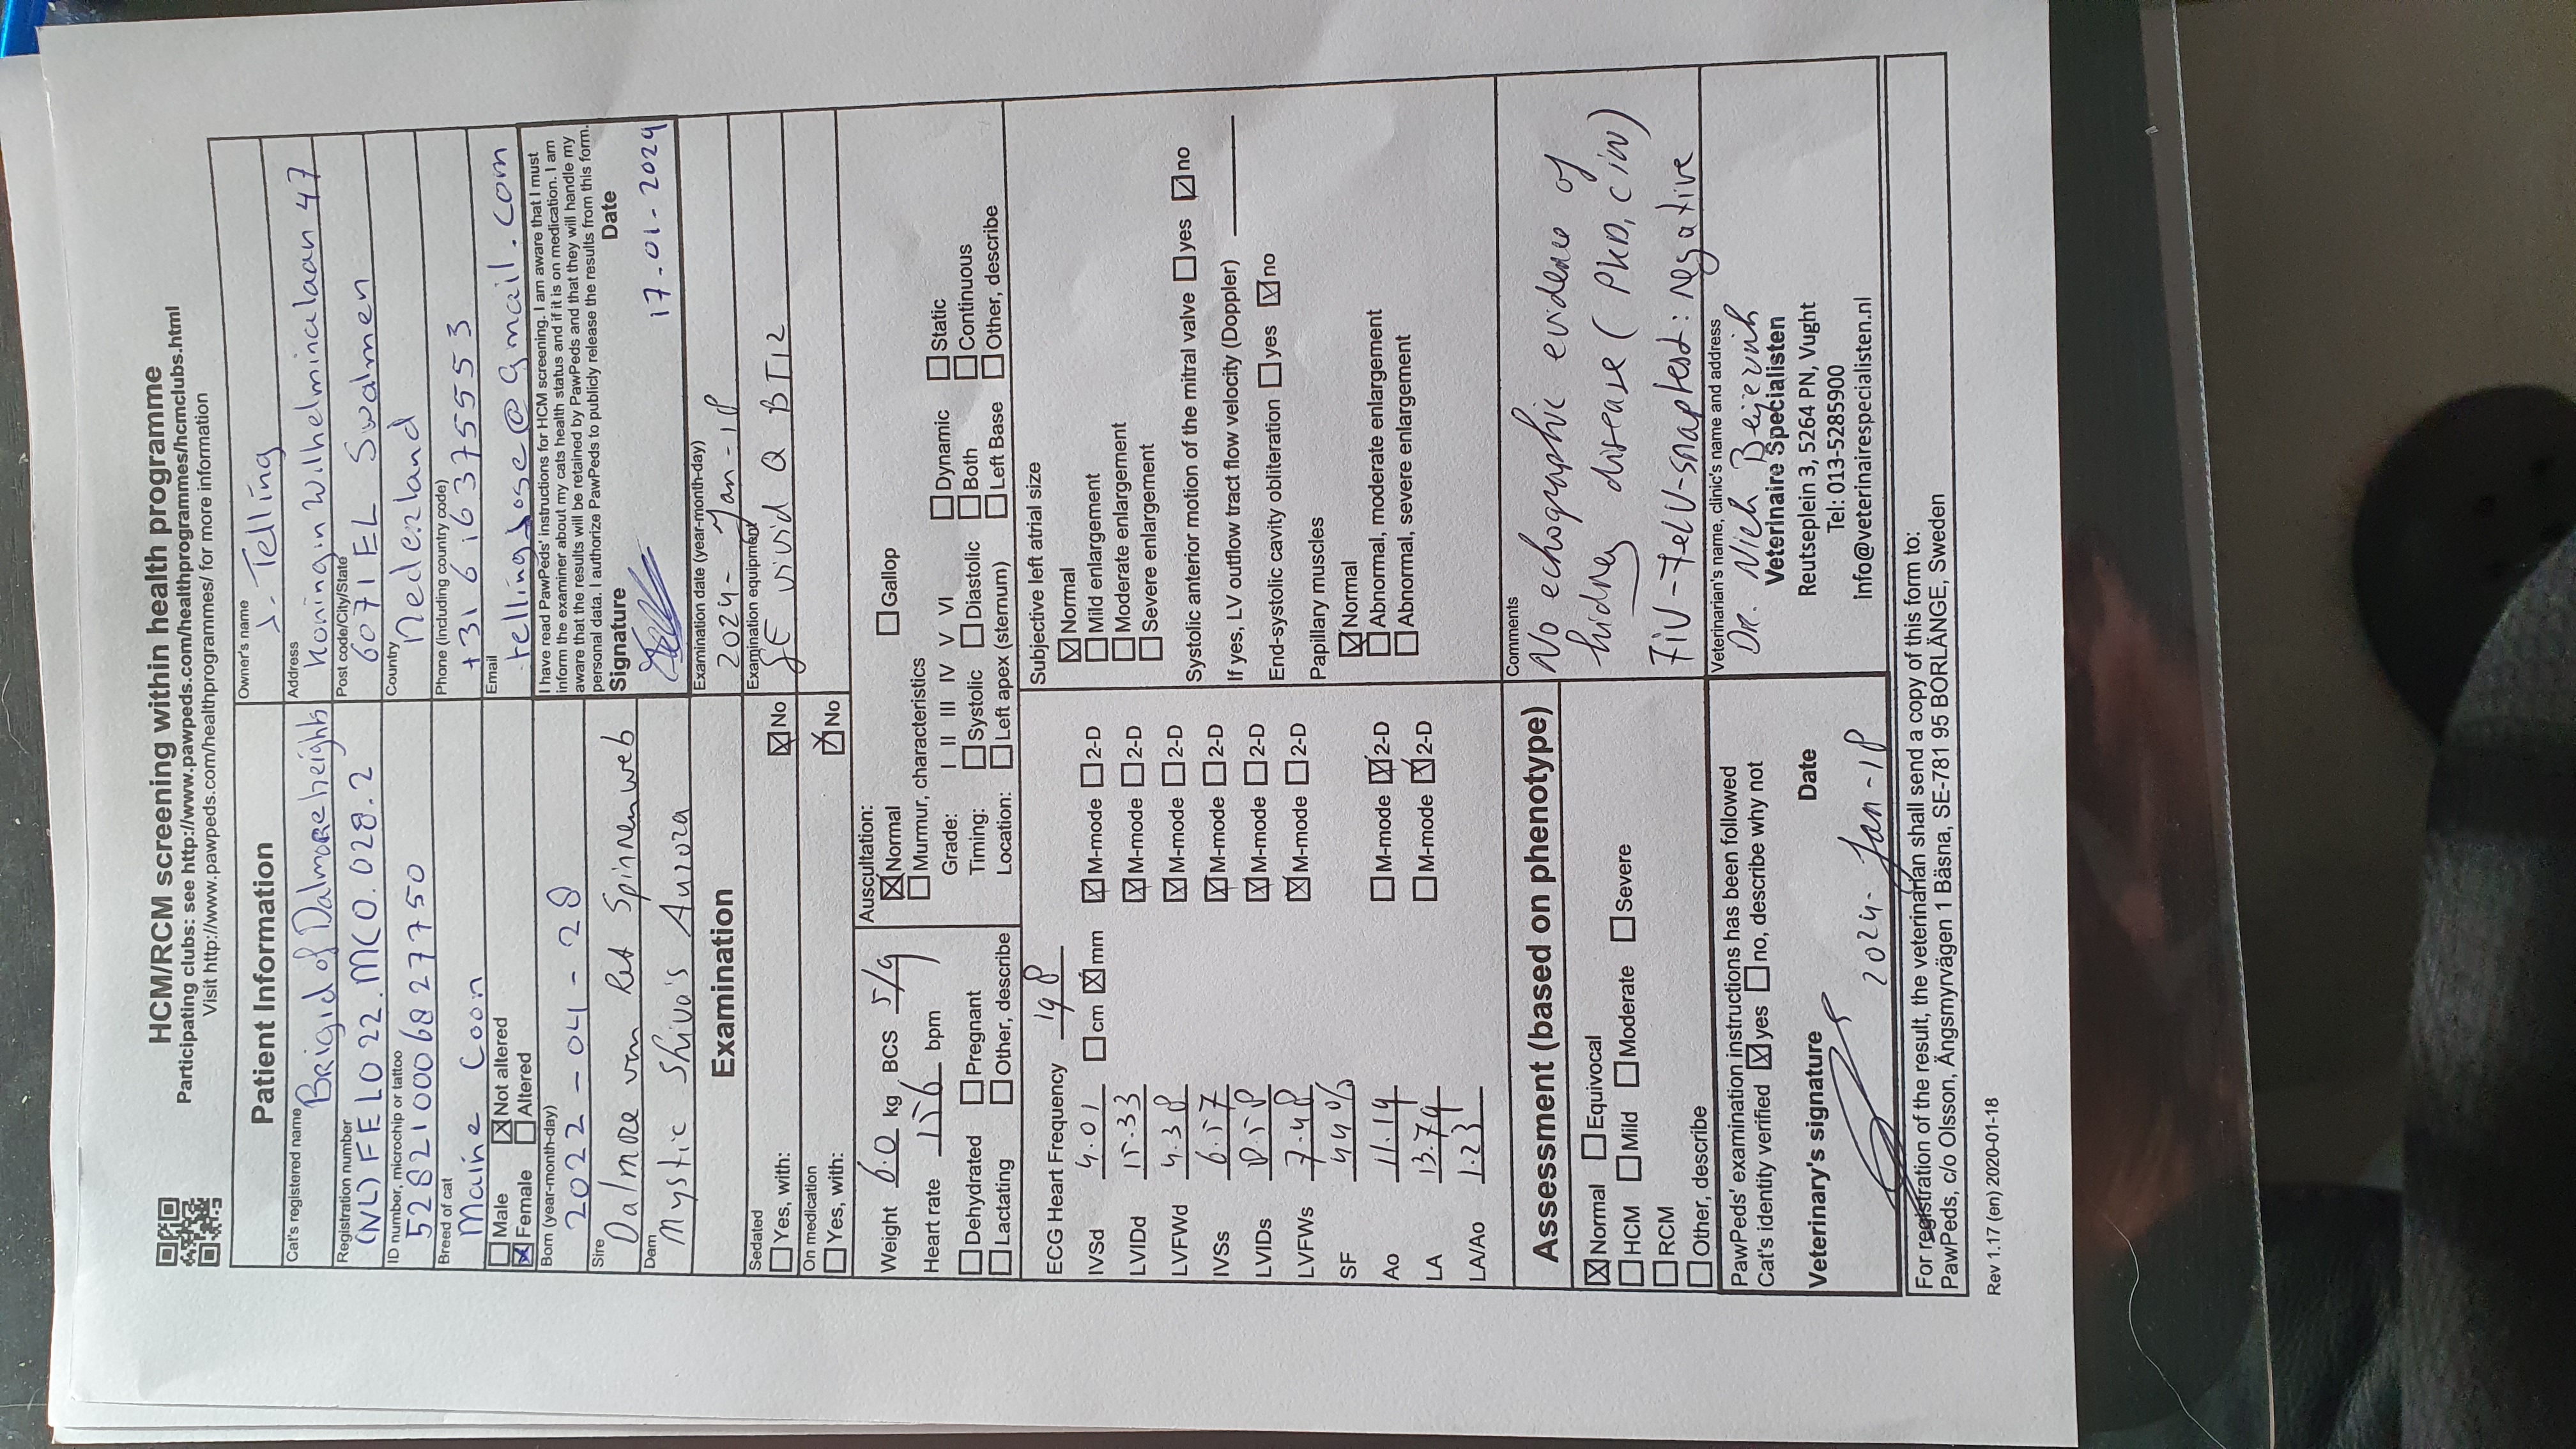 HCM/RCM screening within health programme
Participating clubs: see http://www.pawpeds.com/healthprogrammes/hcmclubs.html
Visit http://www.pawpeds.com/healthprogrammes/ for more information
Patient Information
Cat's registered name
Brigid of Dalmoreheights
Registration number
(NL) FELO 22.MCO.028.2
ID number, microchip or tattoo
528210006827750
Breed of cat
Maine Coon
Male Not altered
Female Altered
Born (year-month-day)
2022-04-28
Sire
Dalmore van het Spinnenweb
Dam
Mystic Shiva's Aurora
Owner's name
J. Telling
Address
Koningin Wilhelminalaan 47
Post code/City/State
6071EL Swalmen
Country
Nederland
Phone (including country code)
+31 6 1 6 3 7 5 5 5 3
Email
tellingjose@gmail.com
I have read PawPeds' instructions for HCM screening. I am aware that I must
inform the examiner about my cats health status and if it is on medication. I am
aware that the results will be retained by PawPeds and that they will handle my
personal data. I authorize PawPeds to publicly release the results from this form.
Signature Date
17-01-2024
Examination
Examination date (year-month-day)
2024-Jan-18
Sedated
Yes, with: No
Examination equipment
GE vivid Q BT12
On medication
Yes, with: No
Weight 6.0 kg BCS 5/9
Heart rate 156 bpm
Dehydrated Pregnant
Lactating Other, describe
Auscultation:
Normal Gallop
Murmur, characteristics
Grade: I II III IV V VI
Timing: Systolic Diastolic Dynamic Static
Both Continuous
Location: Left apex (sternum) Left Base Other, describe
ECG Heart Frequency 198
IVSd 4.01 cm mm M-mode 2-D
LVIDd 15.33 M-mode 2-D
LVFWd 4.38 M-mode 2-D
IVSs 6.57 M-mode 2-D
LVIDs 8.58 M-mode 2-D
LVFWs 7.48 M-mode 2-D
SF 44%
Ao 11.14 M-mode 2-D
LA 13.74 M-mode 2-D
LA/Ao 1.23
Subjective left atrial size
Normal
Mild enlargement
Moderate enlargement
Severe enlargement
Systolic anterior motion of the mitral valve yes no
If yes, LV outflow tract flow velocity (Doppler)
End-systolic cavity obliteration yes no
Papillary muscles
Normal
Abnormal, moderate enlargement
Abnormal, severe enlargement
Assessment (based on phenotype)
Normal Equivocal
HCM Mild Moderate Severe
RCM
Other, describe
Comments
No echographic evidence of
kidney disease (PKD, CIN)
FIV-FeLV-snaptest: negative
PawPeds' examination instructions has been followed
Cat's identity verified yes no, describe why not
Veterinary's signature Date
2024-Jan-18
Veterinarian's name, clinic's name and address
Dr. Niek Beijerink
Veterinaire Specialisten
Reutseplein 3, 5264 PN, Vught
Tel: 013-5285900
info@veterinairespecialisten.nl
For registration of the result, the veterinarian shall send a copy of this form to:
PawPeds, c/o Olsson, Ängsmyrvägen 1 Bäsna, SE-781 95 BORLÄNGE, Sweden
Rev 1.17 (en) 2020-01-18